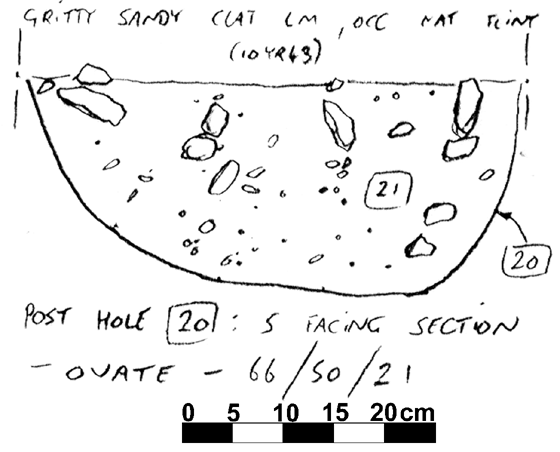 GRITTY SANDY CLAY LM, OCC NAT FLINT
(10YR43)
21
20
POST HOLE 20 : S FACING SECTION
- OVATE - 66/50/21
0 5 10 15 20cm